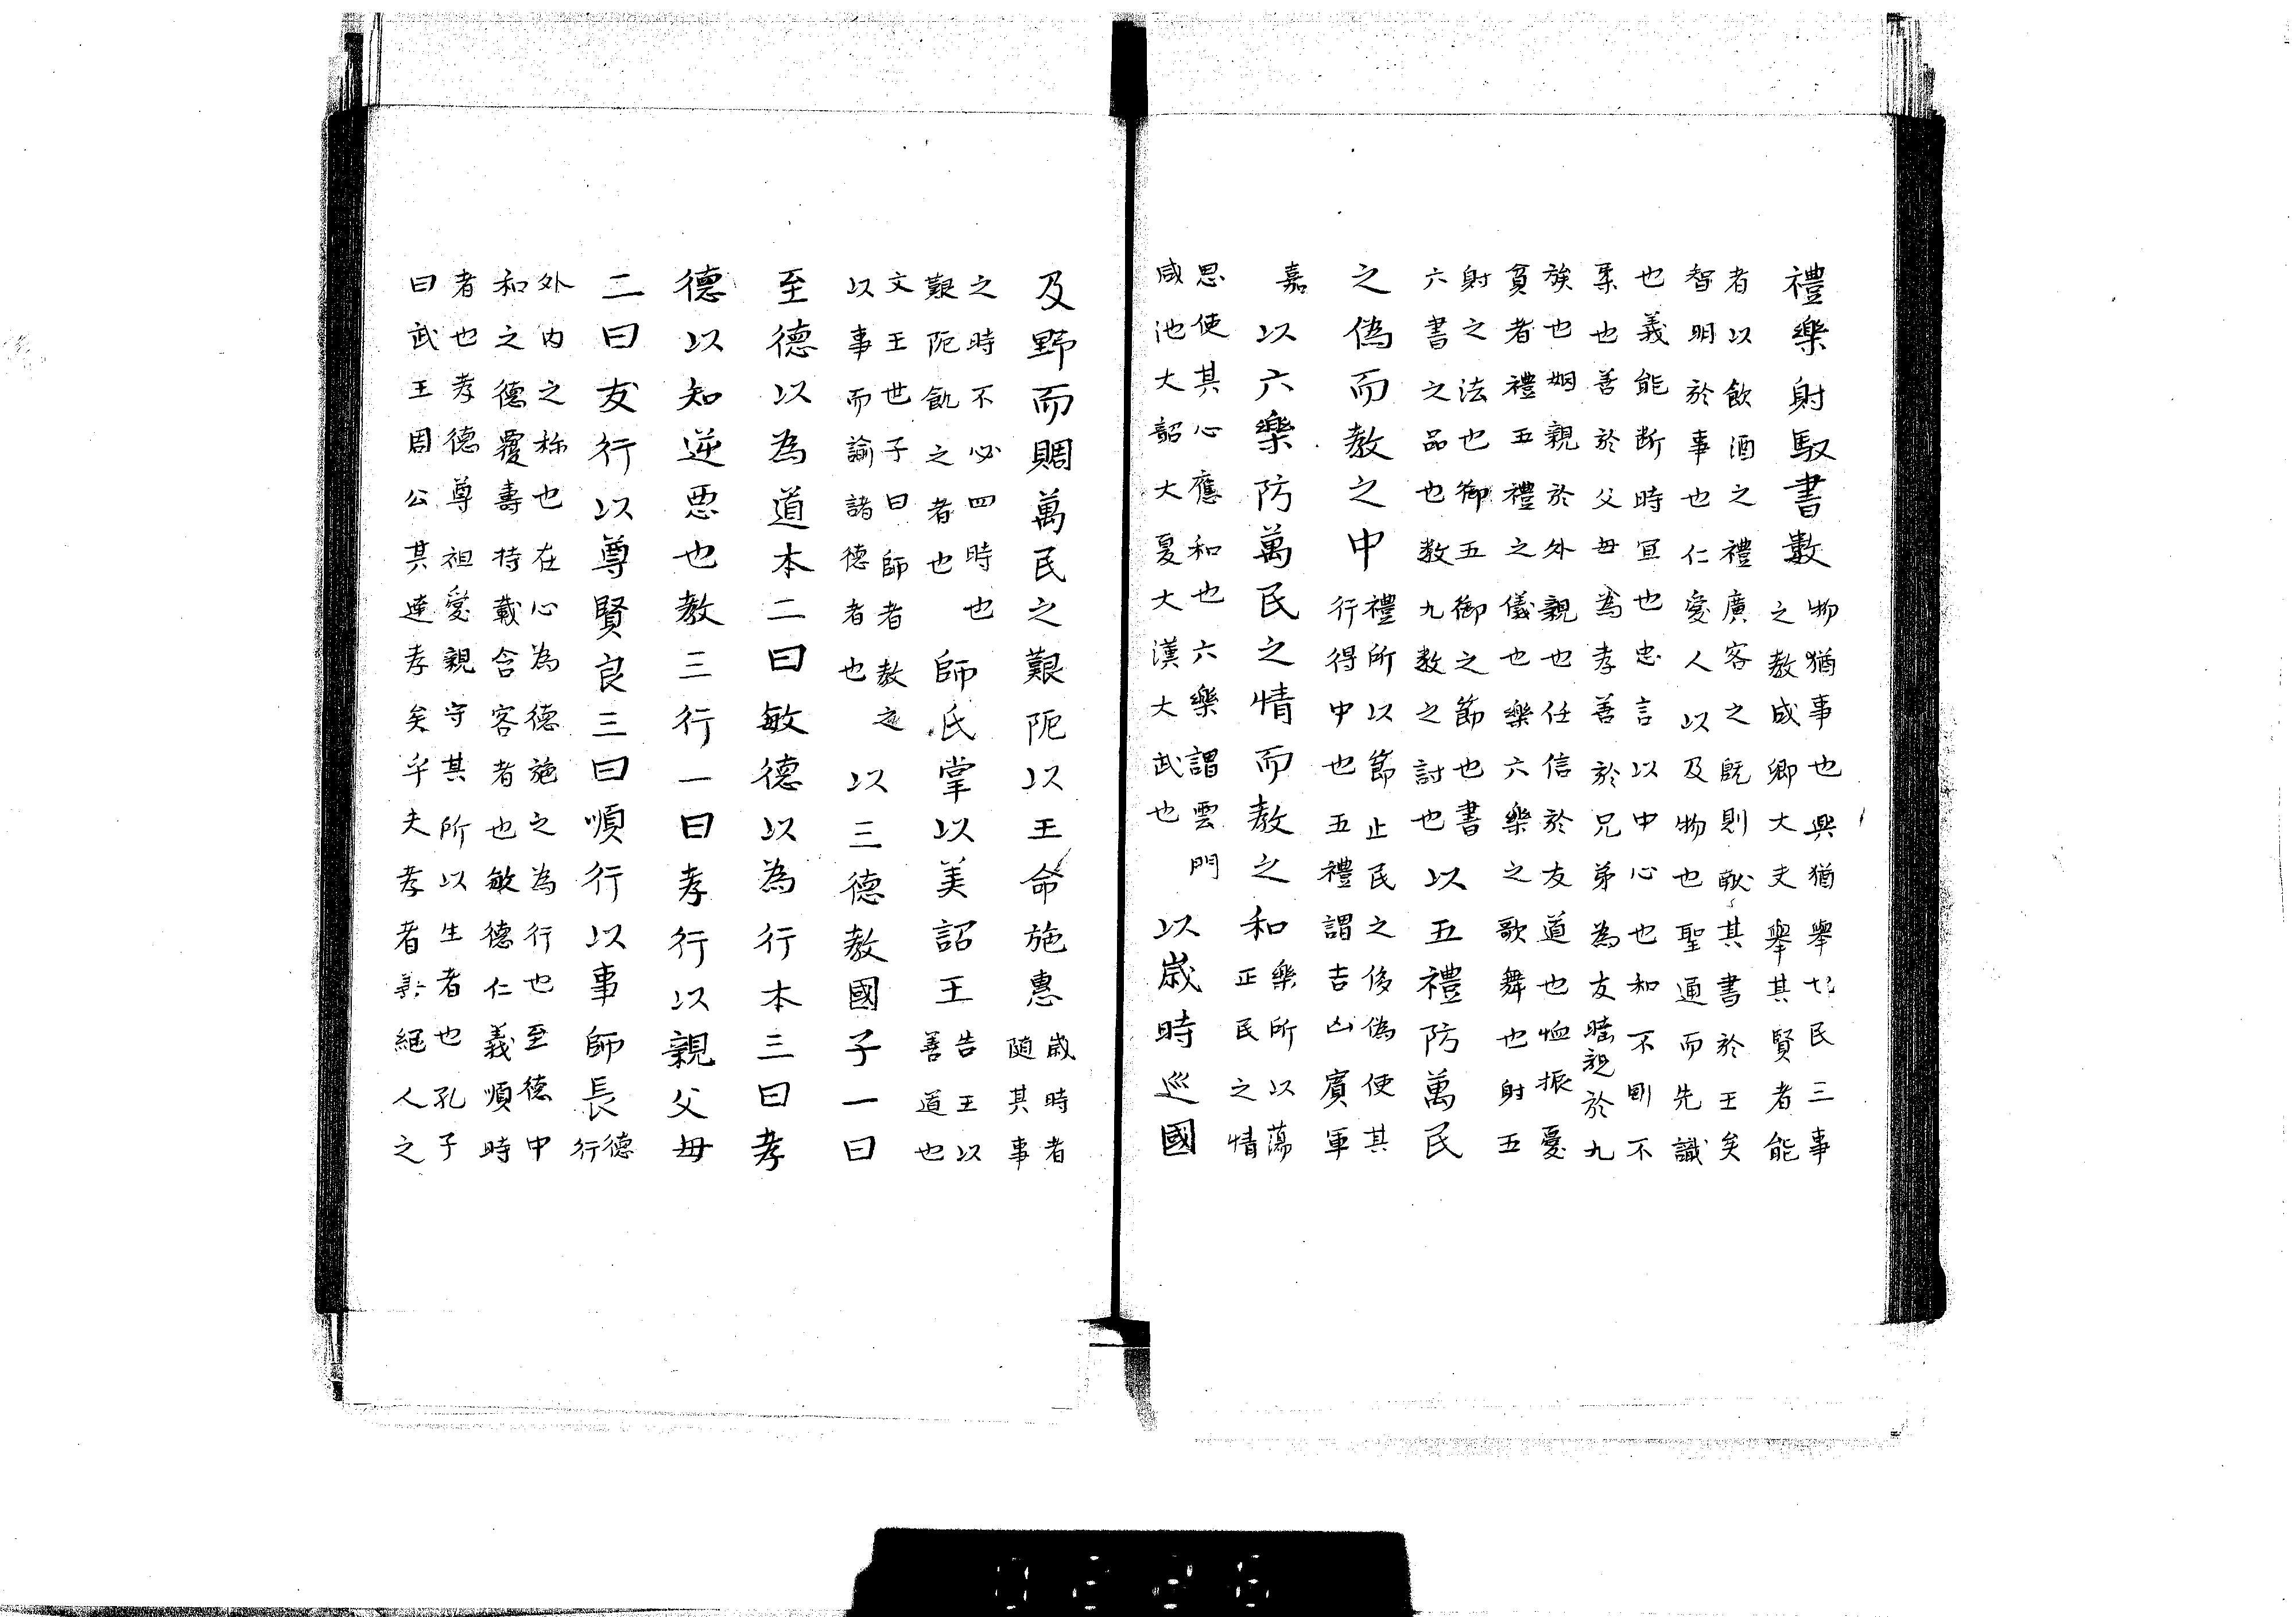 禮樂射馭書數物猶事也興猶舉也民三事
之教成鄉大夫舉其賢者能
者以飲酒之禮廣客之既則獻其書於王矣
智明於事也仁愛人以及物也聖通而先識
也義能断時宜也忠言以中心也和不剛不
柔也善於父母為孝善於兄弟為友睦親於九
族也姻親於外親也任信於友道也恤振憂
貧者禮五禮之儀也樂六樂之歌舞也射五
射之法也御五御之節也書
六書之品也数九数之討也以五禮防萬民
之偽而教之中禮所以節止民之侈偽使其
行得中也五禮謂吉凶賓軍
嘉以六樂防萬民之情而教之和樂所以蕩
正民之情
思使其心應和也六樂謂雲門
咸池大韶大夏大漢大武也以歳時巡國
及野而賙萬民之艱阨以王命施惠歳時者
隨其事
之時不必四時也
艱阨飢之者也師氏掌以美詔王告王以
善道也
文王世子曰師者教之
以事而諭諸德者也以三德教國子一曰
至德以為道本二曰敏德以為行本三曰孝
德以知逆悪也教三行一曰孝行以親父母
二曰友行以尊賢良三曰順行以事師長德
行
外内之称也在心為德施之為行也至德中
和之德覆壽持載含容者也敏德仁義順時
者也孝德尊祖愛親守其所以生者也孔子
曰武王周公其達孝矣乎夫孝者繼人之